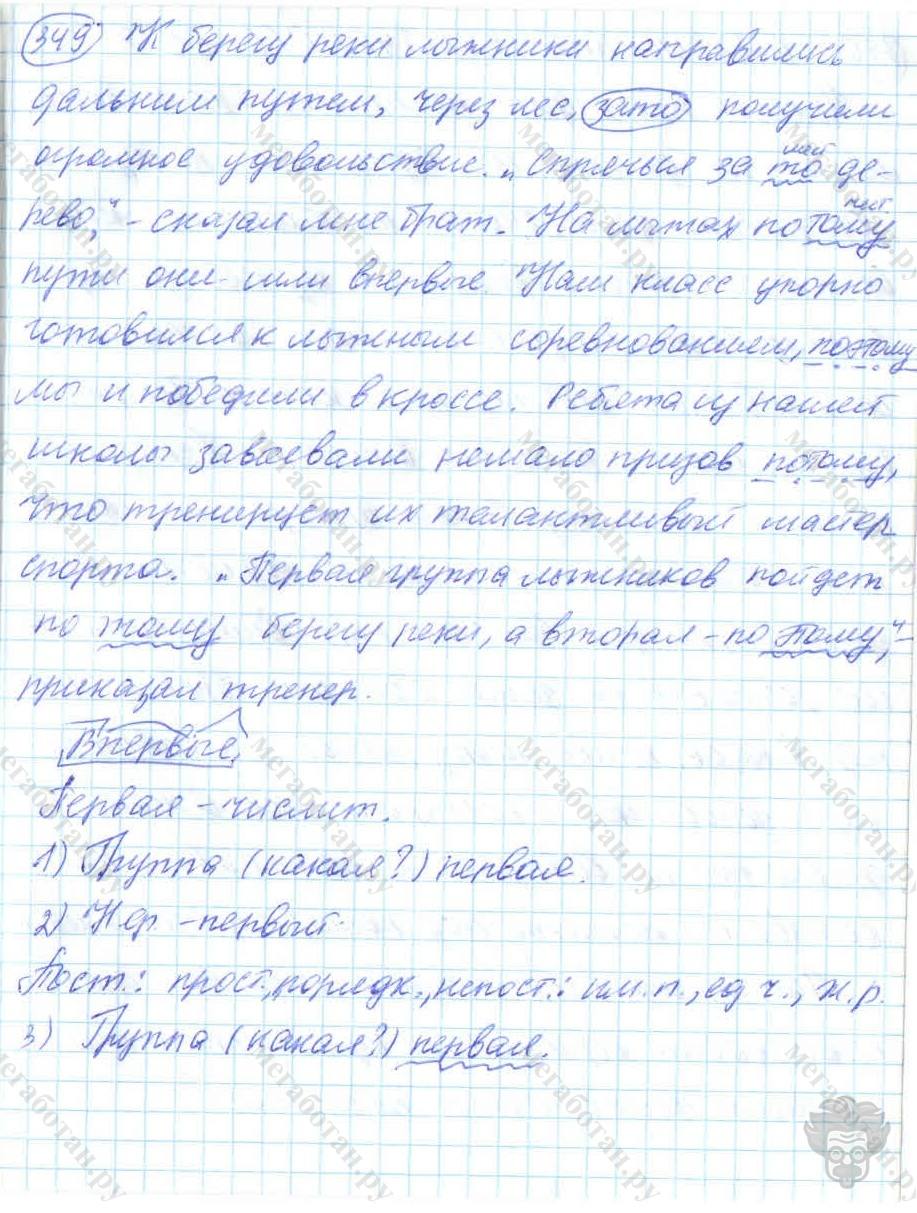 349 К берегу реки лыжники направились
дальним путем, через лес, зато получили
огромное удовольствие. „Спрячься за то де-
мест
рево," - сказал мне брат. На лыжах по тому
мест
пути они шли впервые. Наш класс упорно
готовился к лыжным соревнованием, поэтому
мы и победили в кроссе. Ребята из нашей
школы завоевали немало призов потому,
что тренирует их талантливый мастер
спорта. „Первая группа лыжников пойдет
по тому берегу реки, а вторая - по этому," -
приказал тренер.
Впервые
Первая - числит.
1) Группа (какая?) первая.
2) Н.ф. - первый.
Пост.: прост., порядк., непост.: им.п., ед ч., ж.р.
3) Группа (какая?) первая.
Мегаботан.ру